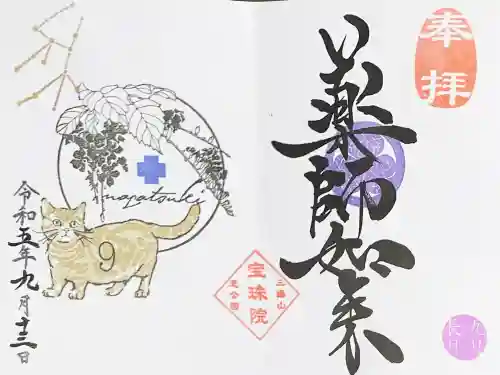 奉拝
薬師如来
宝珠院
三縁山
芝公園
nagatsuki
9
令和五年九月十三日
長月